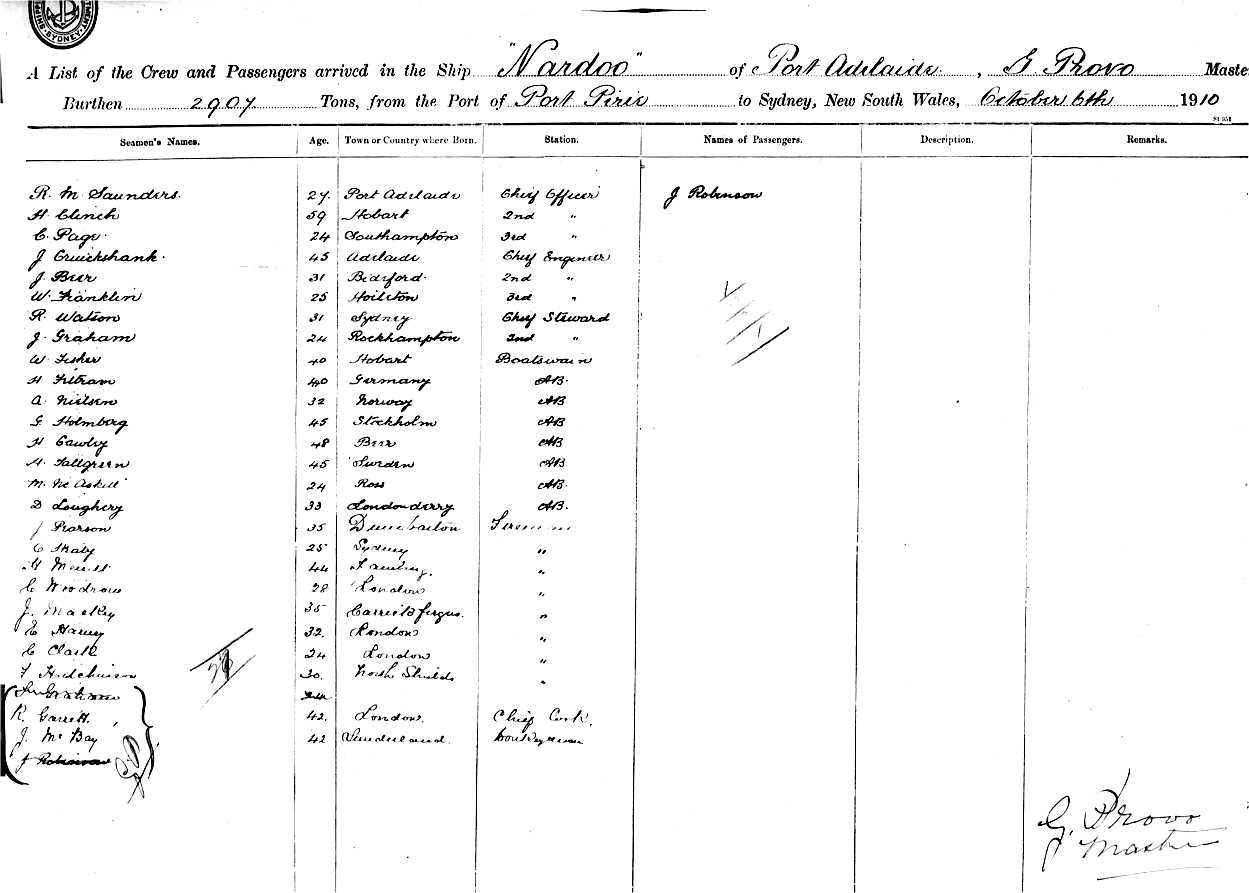 SYDNEY
A List of the Crew and Passengers arrived in the Ship "Nardoo" of Port Adelaide, G Provo Maste
Burthen 2907 Tons, from the Port of Port Pirie to Sydney, New South Wales, October 6th 1910
Seamen's Names. Age. Town or Country where Born. Station. Names of Passengers. Description. Remarks.
R. M Saunders. 27. Port Adelaide Chief Officer J Robinson
H Clinch 59 Hobart 2nd "
C. Page. 24 Southampton 3rd "
J Cruickshank. 45 Adelaide Chief Engineer
J. Beer 31 Bideford. 2nd "
W. Franklin 25 3rd "
R. Watson 31 Sydney Chief Steward
J. Graham 24 Rockhampton 2nd "
W. Fisher 40 Hobart Boatswain
H 40 Germany AB.
A. Nielsen 32 Norway AB
G Holmberg 45 Stockholm AB
H Cawley 48 Beer AB
H. Tallgreen 45 Sweden AB
M. McAskill 24 Ross AB.
D Loughery 33 Londonderry AB.
J Pearson 35 Dumbarton Firemen
C 25 Sydney "
44 "
C Woodrow 28 London "
J. Mackey 35 Carrickfergus. "
E Harvey 32. London "
C Clark 24 London "
F Hutchinson 30. North Shields "
J Graham 24
R. Garrett. 42. London. Chief Cook.
J. Mc Bay 42 Sunderland. Donkeyman
J Robinson
G. Provo
Master